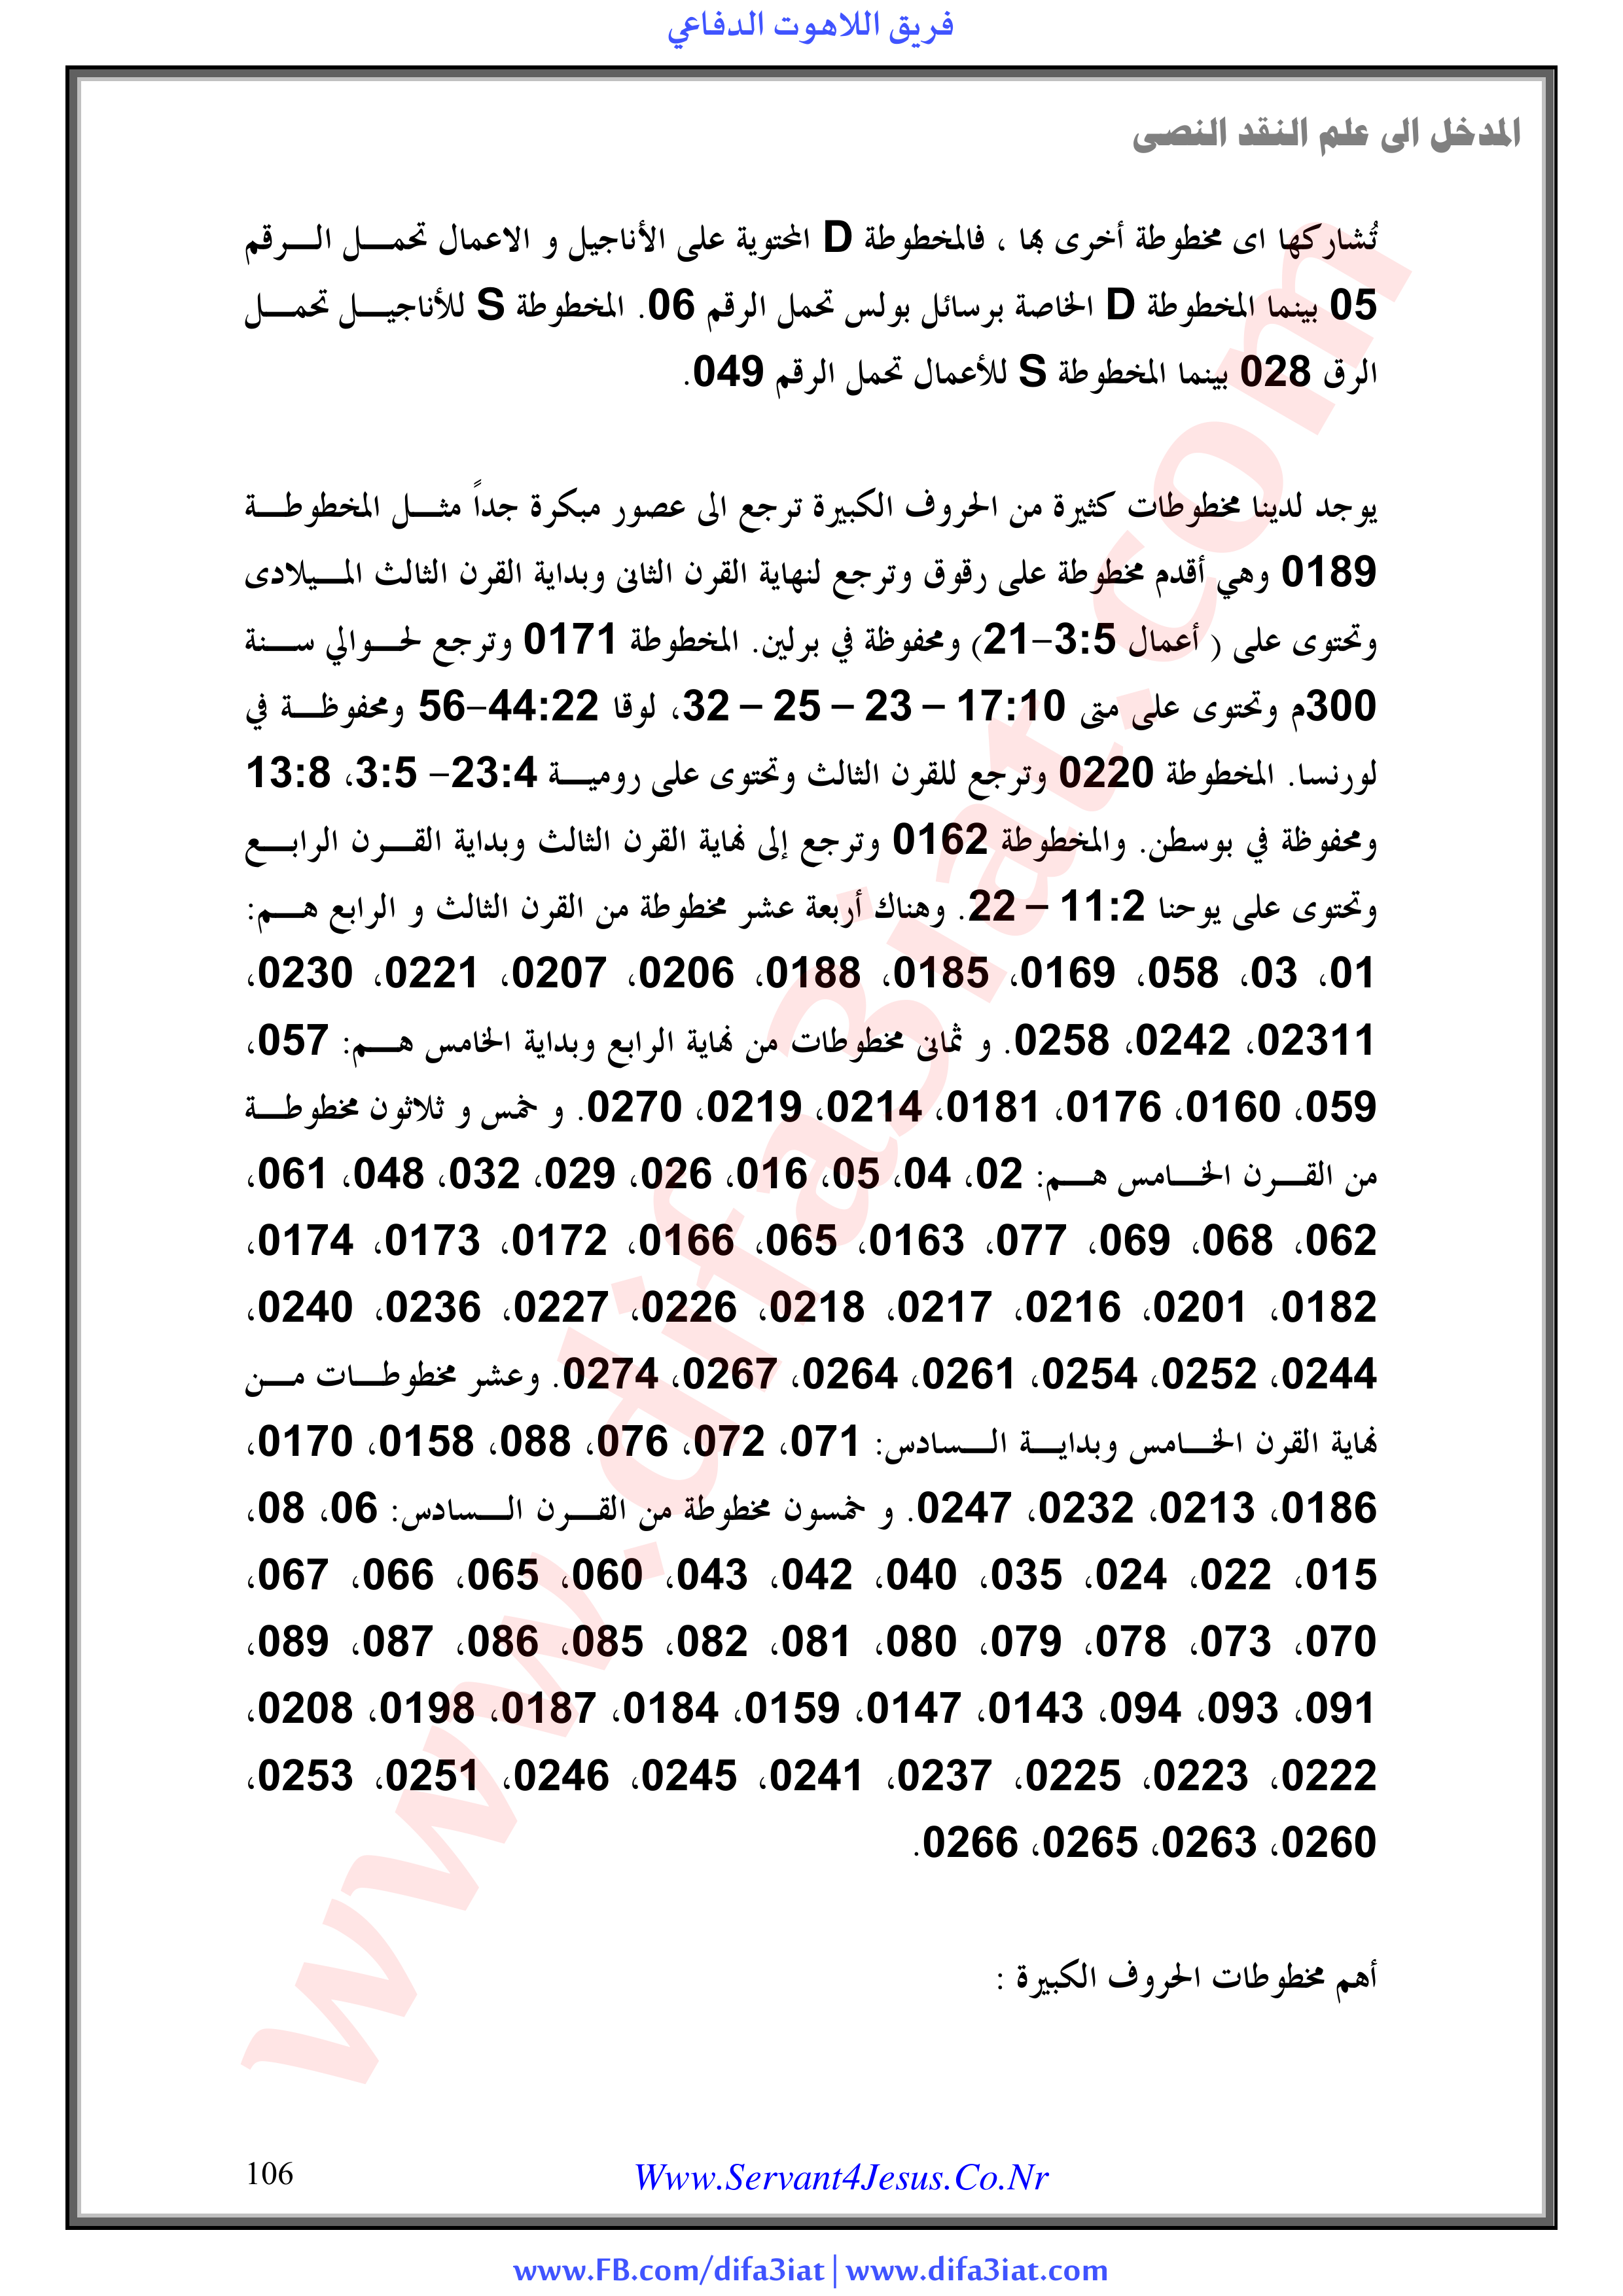 فريق اللاهوت الدفاعي
المدخل الى علم النقد النصى
تُشاركها اى مخطوطة أخرى بها ، فالمخطوطة D المحتوية على الأناجيل و الاعمال تحمل الرقم
05 بينما المخطوطة D الخاصة برسائل بولس تحمل الرقم 06. المخطوطة S للأناجيل تحمل
الرق 028 بينما المخطوطة S للأعمال تحمل الرقم 049.
يوجد لدينا مخطوطات كثيرة من الحروف الكبيرة ترجع الى عصور مبكرة جداً مثل المخطوطة
0189 وهي أقدم مخطوطة على رقوق وترجع لنهاية القرن الثانى وبداية القرن الثالث الميلادى
وتحتوى على ( أعمال 3:5-21) ومحفوظة في برلين. المخطوطة 0171 وترجع لحوالي سنة
300م وتحتوى على متى 17:10 – 23 – 25 – 32، لوقا 44:22-56 ومحفوظة في
لورنسا. المخطوطة 0220 وترجع للقرن الثالث وتحتوى على رومية 23:4- 3:5، 13:8
ومحفوظة في بوسطن. والمخطوطة 0162 وترجع إلى نهاية القرن الثالث وبداية القرن الرابع
وتحتوى على يوحنا 11:2 – 22. وهناك أربعة عشر مخطوطة من القرن الثالث و الرابع هم:
01، 03، 058، 0169، 0185، 0188، 0206، 0207، 0221، 0230،
02311، 0242، 0258. و ثمانى مخطوطات من نهاية الرابع وبداية الخامس هم: 057،
059، 0160، 0176، 0181، 0214، 0219، 0270. و خمس و ثلاثون مخطوطة
من القرن الخامس هم: 02، 04، 05، 016، 026، 029، 032، 048، 061،
062، 068، 069، 077، 0163، 065، 0166، 0172، 0173، 0174،
0182، 0201، 0216، 0217، 0218، 0226، 0227، 0236، 0240،
0244، 0252، 0254، 0261، 0264، 0267، 0274. وعشر مخطوطات من
نهاية القرن الخامس وبداية السادس: 071، 072، 076، 088، 0158، 0170،
0186، 0213، 0232، 0247. و خمسون مخطوطة من القرن السادس: 06، 08،
015، 022، 024، 035، 040، 042، 043، 060، 065، 066، 067،
070، 073، 078، 079، 080، 081، 082، 085، 086، 087، 089،
091، 093، 094، 0143، 0147، 0159، 0184، 0187، 0198، 0208،
0222، 0223، 0225، 0237، 0241، 0245، 0246، 0251، 0253،
0260، 0263، 0265، 0266.
أهم مخطوطات الحروف الكبيرة :
www.difa3iat.com
106
Www.Servant4Jesus.Co.Nr
www.FB.com/difa3iat | www.difa3iat.com